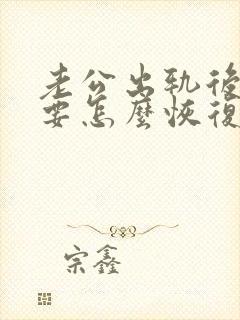 老公出軌後
要怎麼恢復
宗鑫